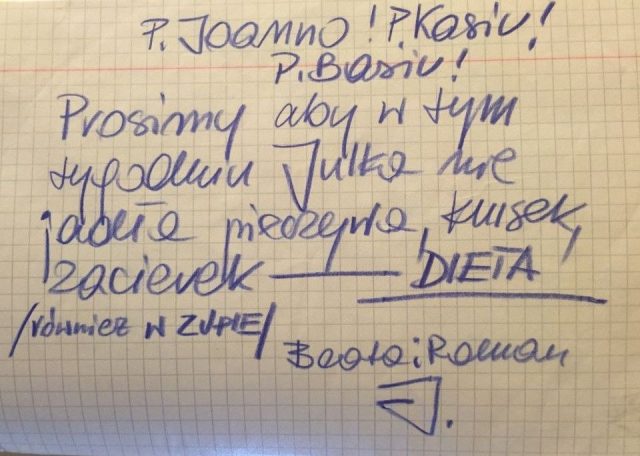 P. Joanno! P. Kasiu!
P. Basiu!
Prosimy aby w tym
tygodniu Julka nie
jadła pieczywa, klusek,
zacierek — DIETA
/również w ZUPIE/
Beata i Roman